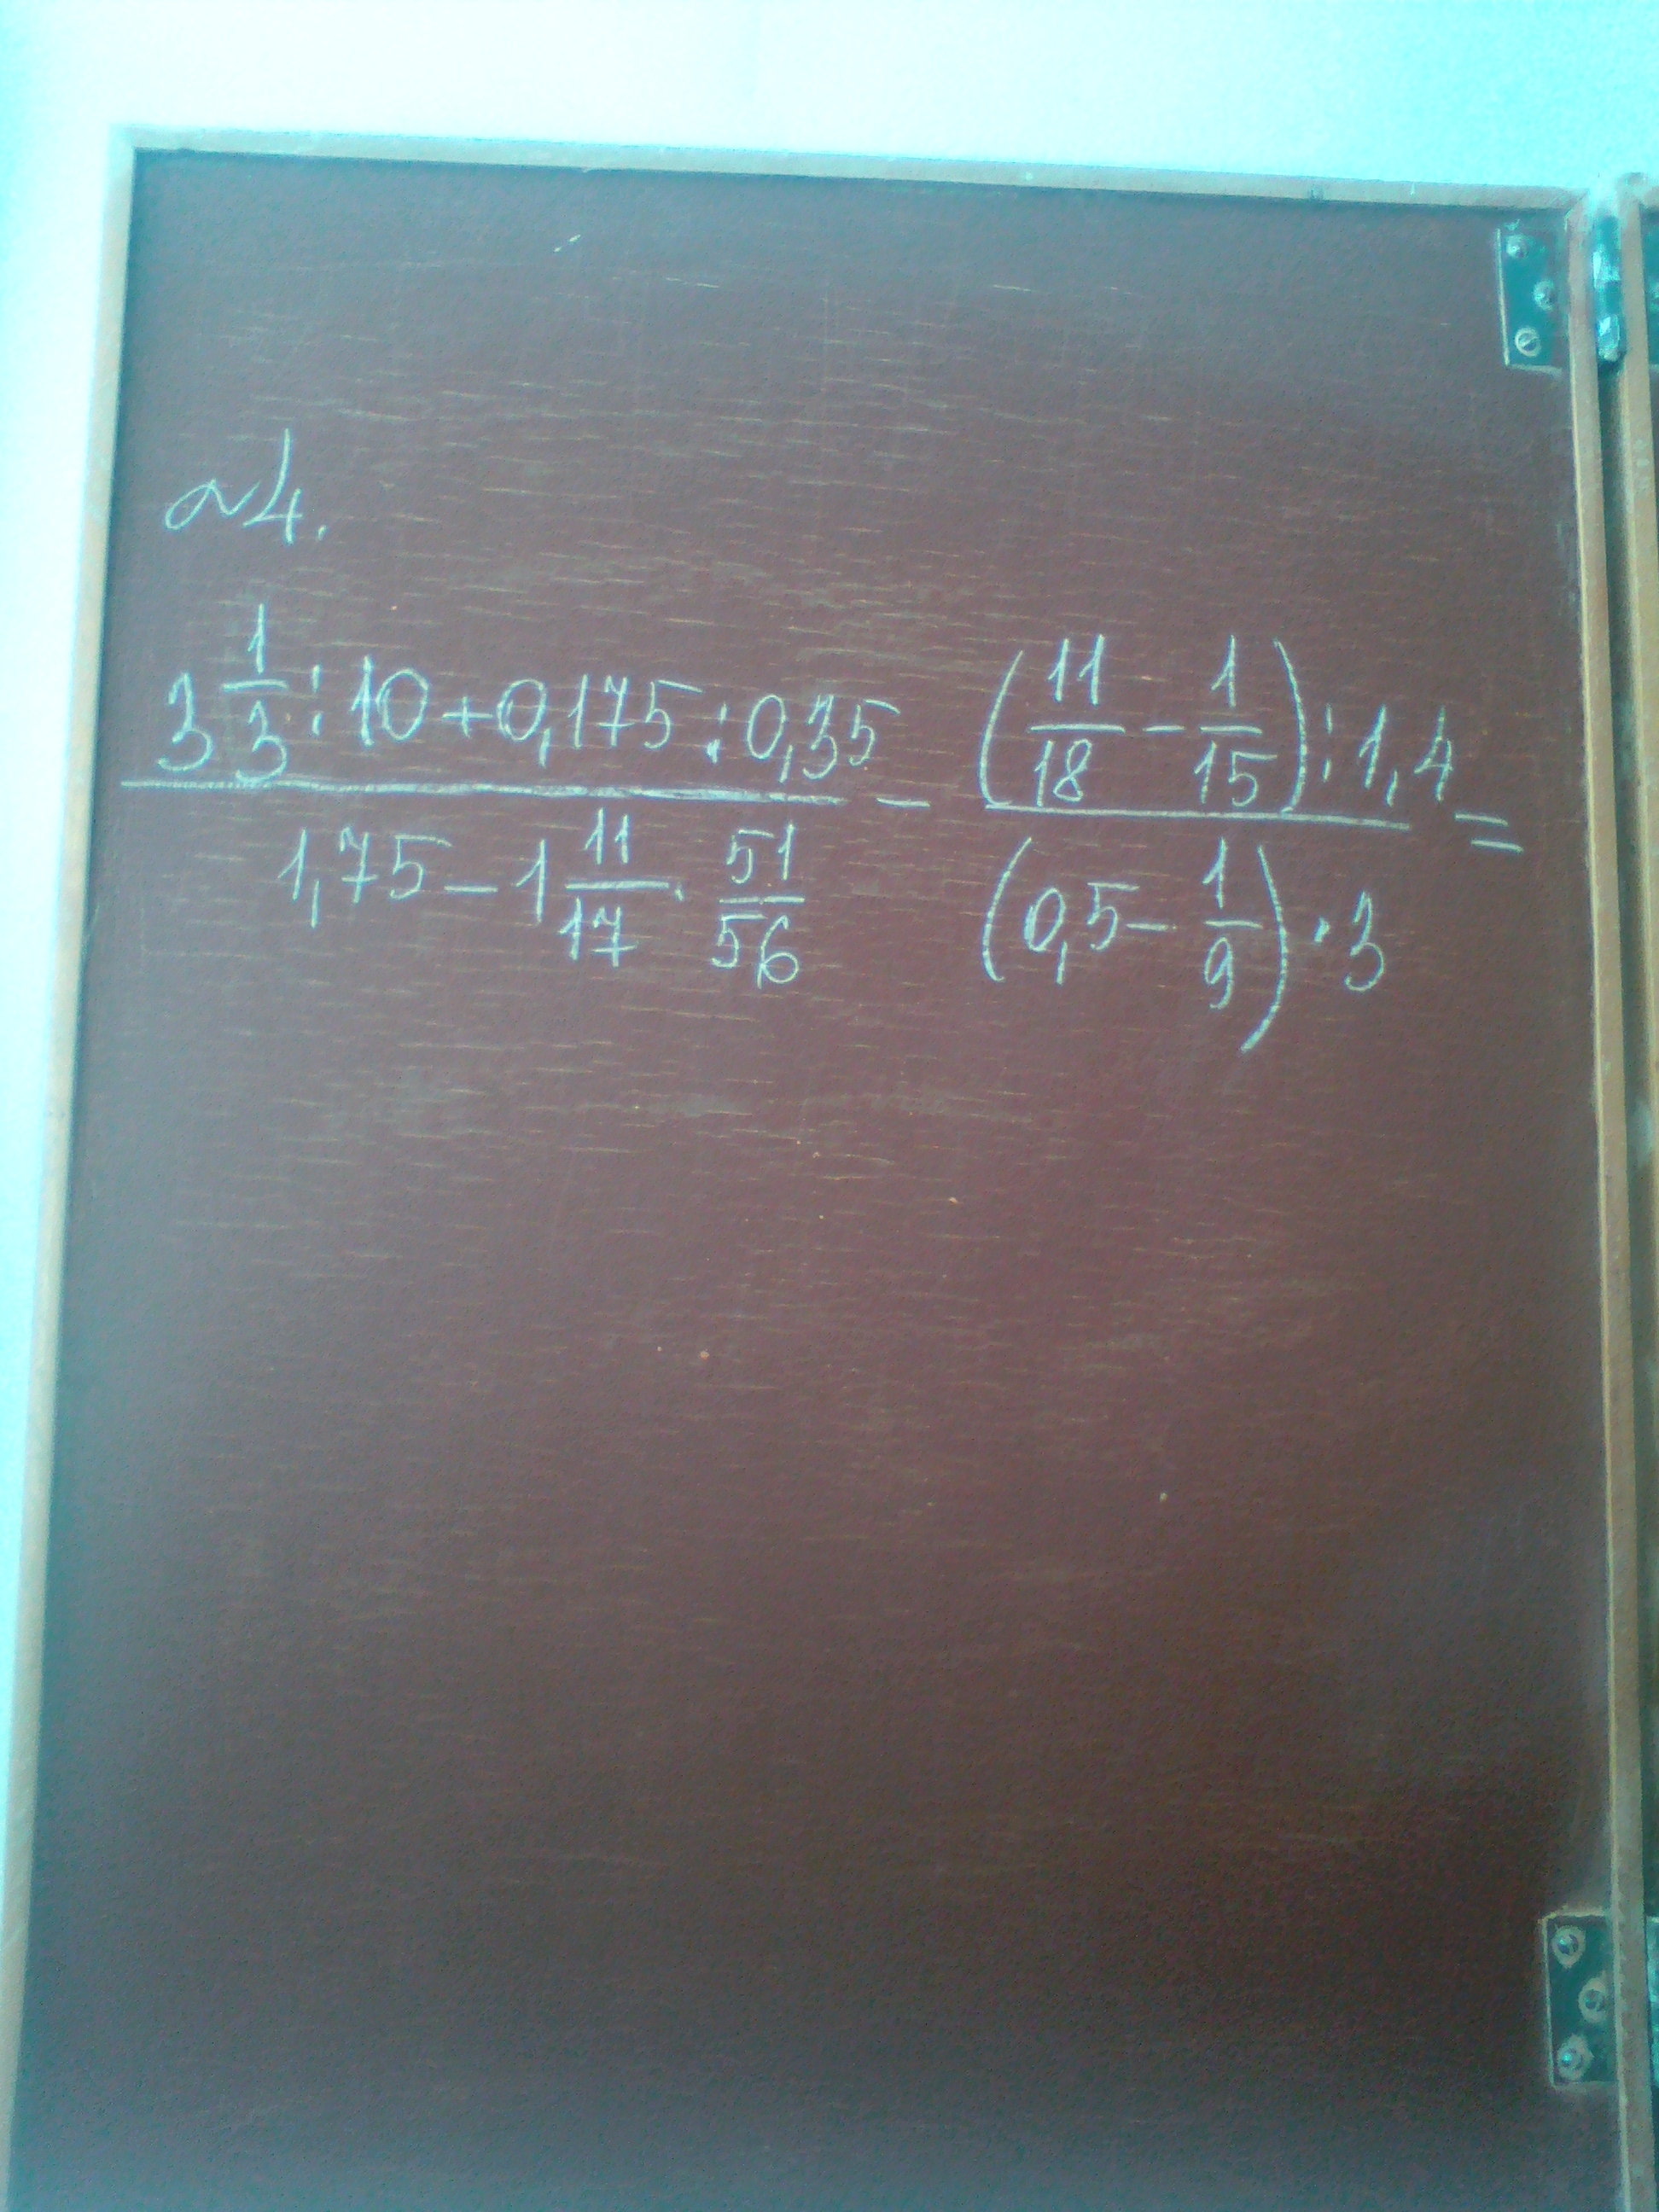 №4.
3 1/3 : 10 + 0,175 : 0,35 / 1,75 − 1 11/17 · 51/56 − (11/18 − 1/15) : 1,4 / (0,5 − 1/9) · 3 =